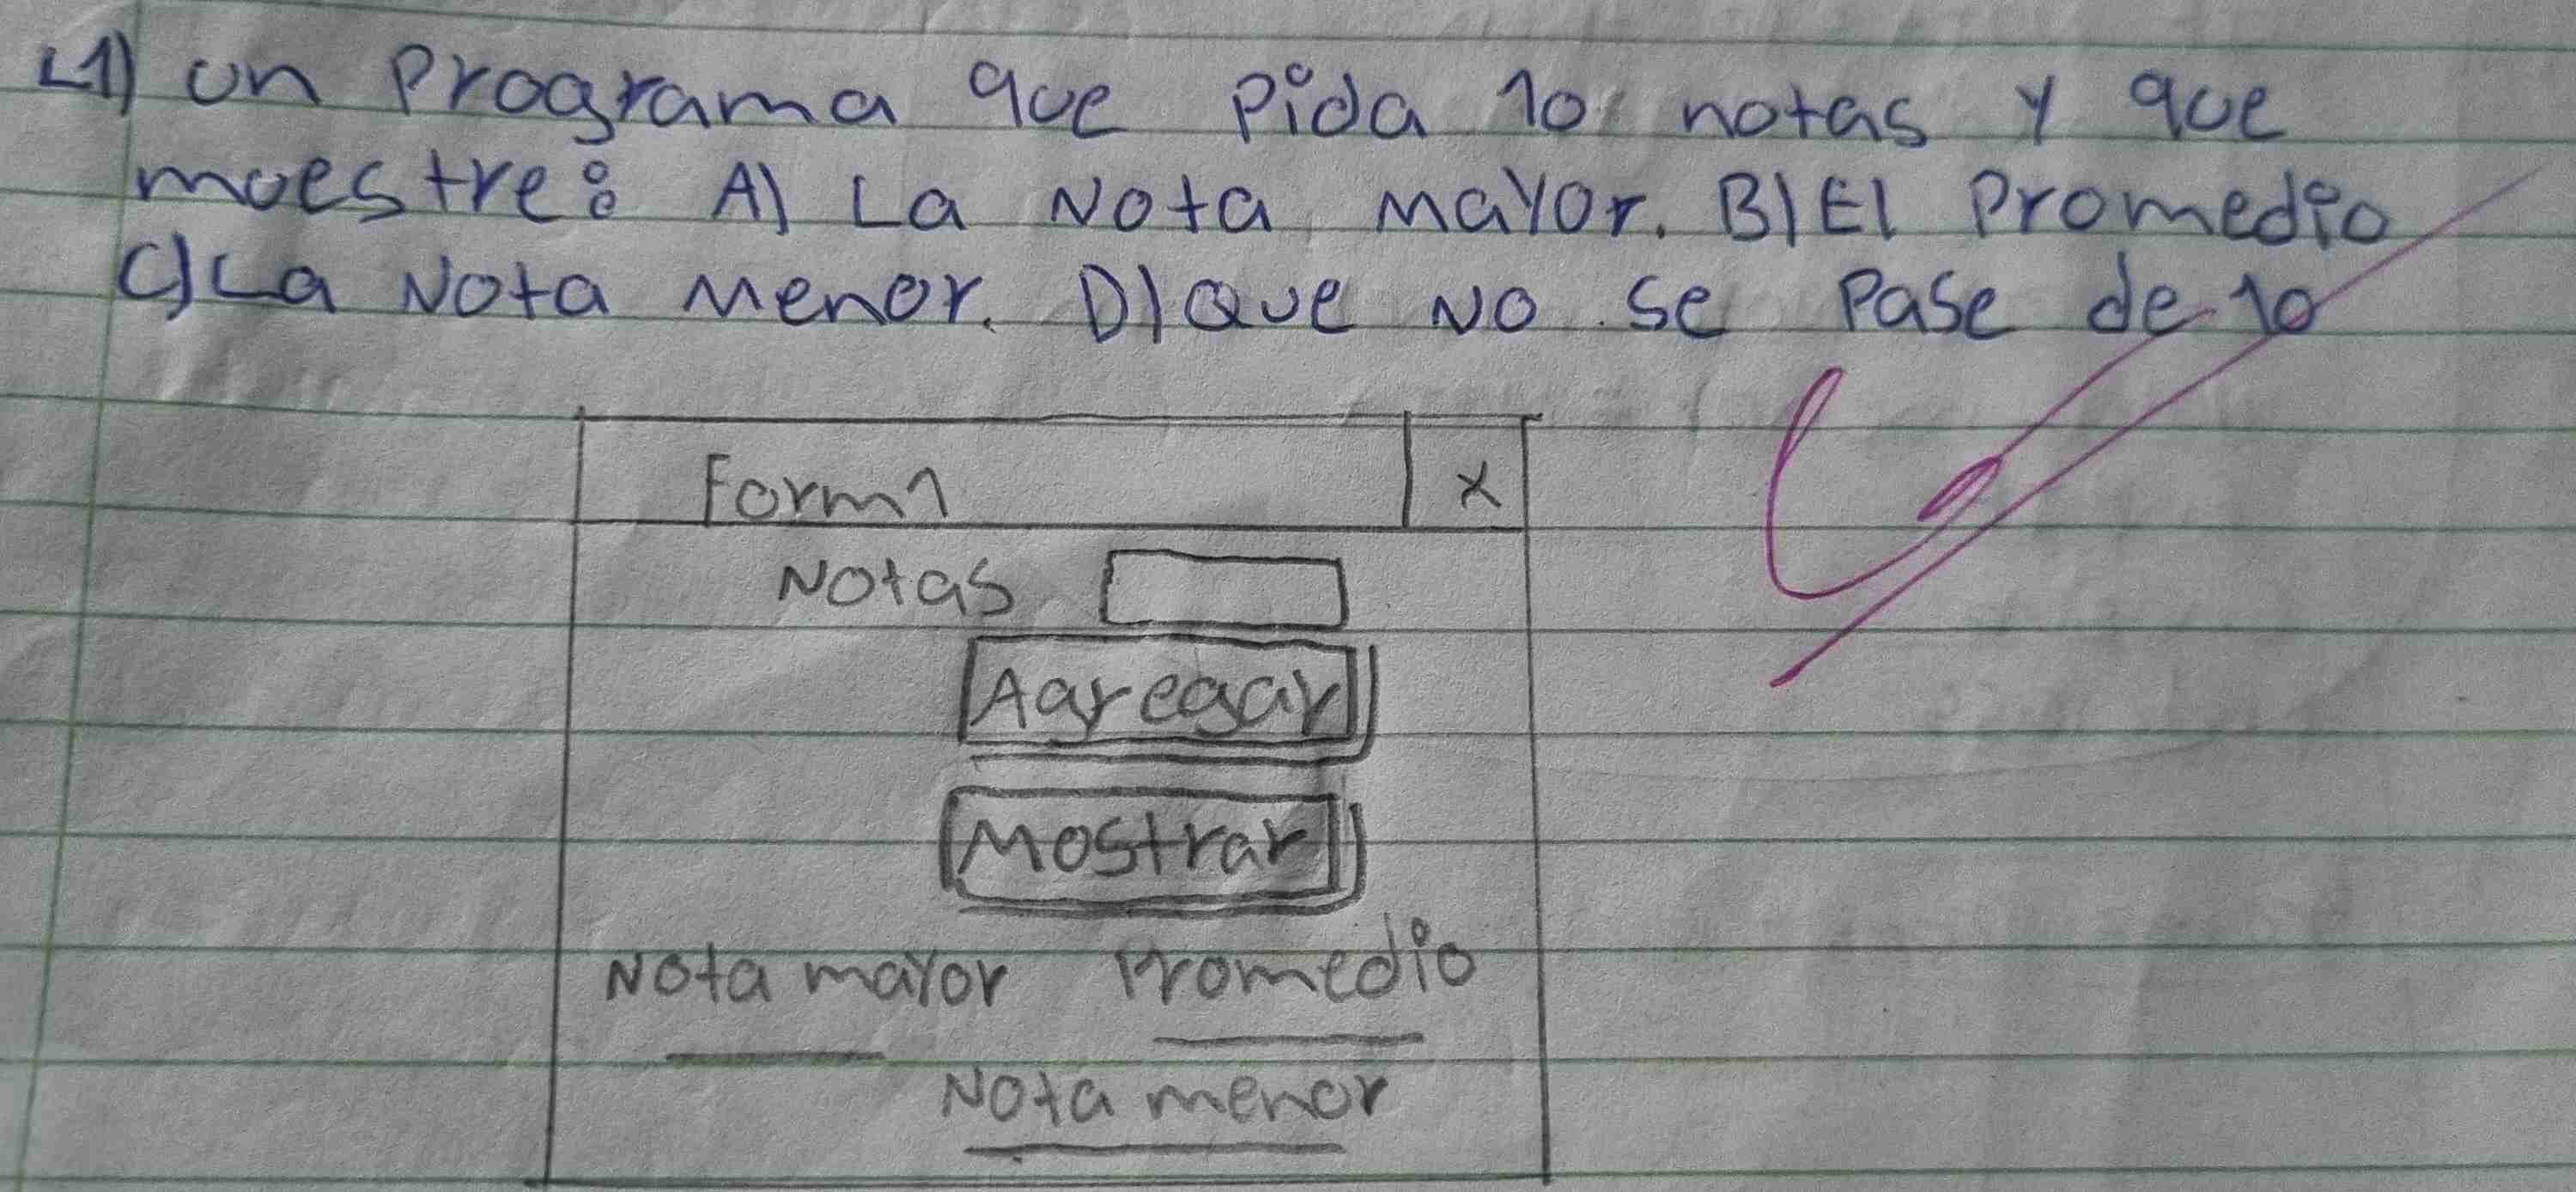 L1) un Programa que Pida 10 notas y que
muestre: A) La Nota mayor. B) El Promedio
C) La Nota Menor. D) Que No se Pase de 10
Form1 X
Notas
Agregar
Mostrar
Nota mayor Promedio
Nota menor